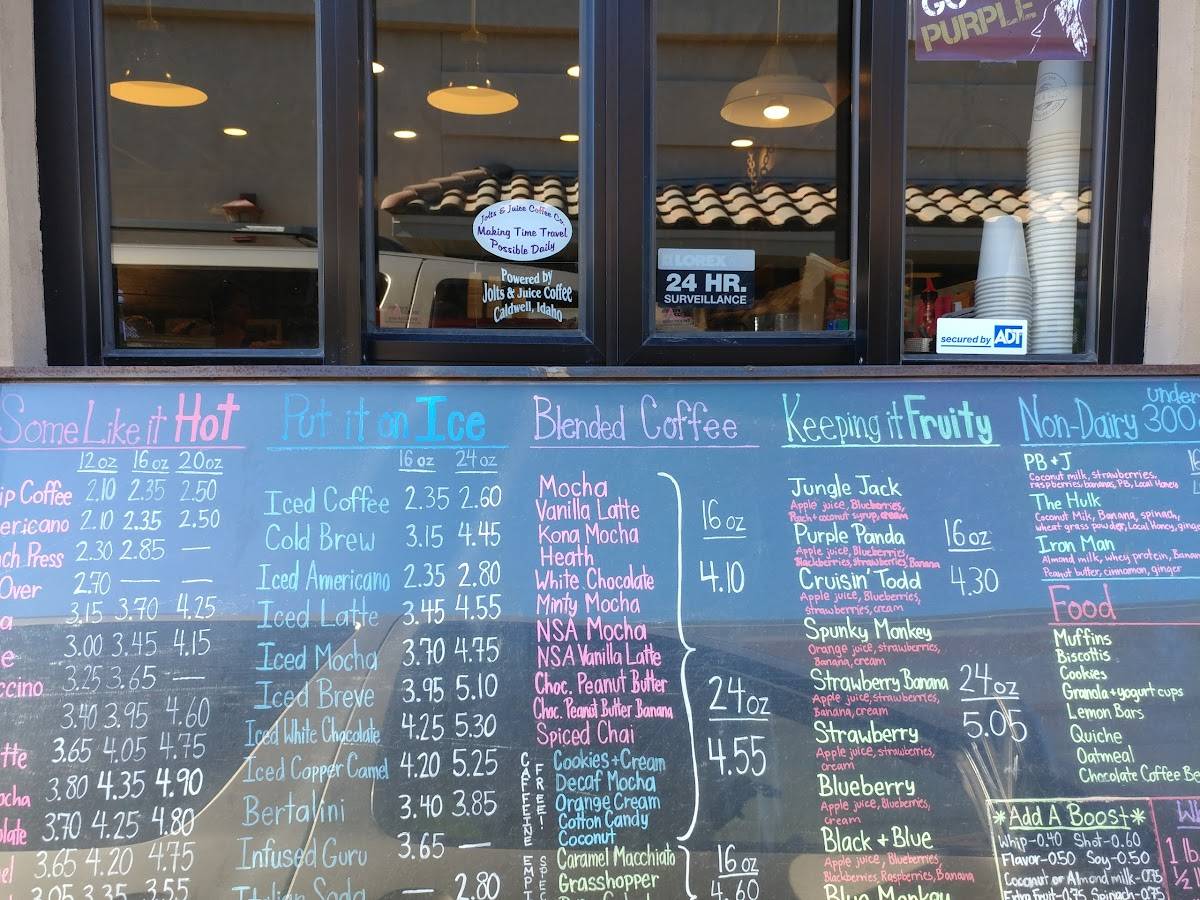 GO
PURPLE
Jolts & Juice Coffee Co.
Making Time Travel
Possible Daily
Powered by
Jolts & Juice Coffee
Caldwell, Idaho
LOREX
24 HR.
SURVEILLANCE
secured by ADT
Some Like it Hot
12oz 16oz 20oz
ip Coffee 2.10 2.35 2.50
ericano 2.10 2.35 2.50
ch Press 2.30 2.85 —
Over 2.70 — —
a 3.15 3.70 4.25
e 3.00 3.45 4.15
ccino 3.25 3.65 —
3.40 3.95 4.60
tte 3.65 4.05 4.75
ocha 3.80 4.35 4.90
olate 3.70 4.25 4.80
el 3.65 4.20 4.75
3.05 3.35 3.55
Put it on Ice
16 oz 24 oz
Iced Coffee 2.35 2.60
Cold Brew 3.15 4.45
Iced Americano 2.35 2.80
Iced Latte 3.45 4.55
Iced Mocha 3.70 4.75
Iced Breve 3.95 5.10
Iced White Chocolate 4.25 5.30
Iced Copper Camel 4.20 5.25
Bertalini 3.40 3.85
Infused Guru 3.65 —
Italian Soda — 2.80
Blended Coffee
Mocha
Vanilla Latte
Kona Mocha
Heath
White Chocolate
Minty Mocha
NSA Mocha
NSA Vanilla Latte
Choc. Peanut Butter
Choc. Peanut Butter Banana
Spiced Chai
CAFFEINE FREE!
Cookies+Cream
Decaf Mocha
Orange Cream
Cotton Candy
Coconut
16 oz
4.10
24oz
4.55
Caramel Macchiato
Grasshopper
16 oz
4.60
Keeping it Fruity
Jungle Jack
Apple juice, Blueberries,
Peach+coconut syrup, cream
Purple Panda
Apple juice, Blueberries,
Blackberries, Strawberries, Banana
Cruisin' Todd
Apple juice, Blueberries,
strawberries, cream
Spunky Monkey
Orange juice, strawberries,
Banana, cream
Strawberry Banana
Apple juice, strawberries,
Banana, cream
Strawberry
Apple juice, strawberries,
cream
Blueberry
Apple juice, Blueberries,
cream
Black + Blue
Apple juice, Blueberries,
Blackberries, Raspberries, Banana
Blue Monkey
16 oz
4.30
24oz
5.05
Non-Dairy under 300
PB + J
Coconut milk, strawberries,
raspberries, bananas, PB, Local Honey
The Hulk
Coconut Milk, Banana, spinach,
wheat grass powder, Local Honey, ginge
Iron Man
Almond milk, whey protein, Banan
Peanut butter, cinnamon, ginger
Food
Muffins
Biscottis
Cookies
Granola+yogurt cups
Lemon Bars
Quiche
Oatmeal
Chocolate Coffee Be
*Add A Boost*
Whip-0.40 Shot-0.60
Flavor-0.50 Soy-0.50
Coconut or Almond milk-0.75
Extra Fruit-0.75 Spinach-0.75
1 lb
½ l